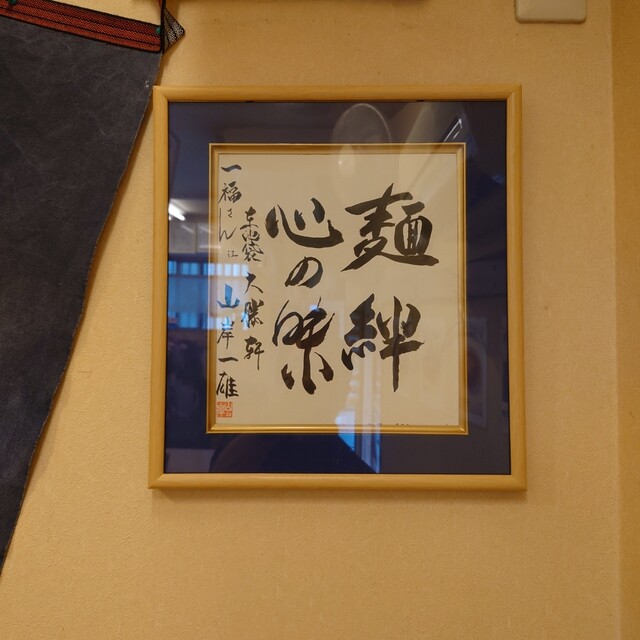 麺絆
心の味
東池袋 大勝軒
一福さん江 山岸一雄